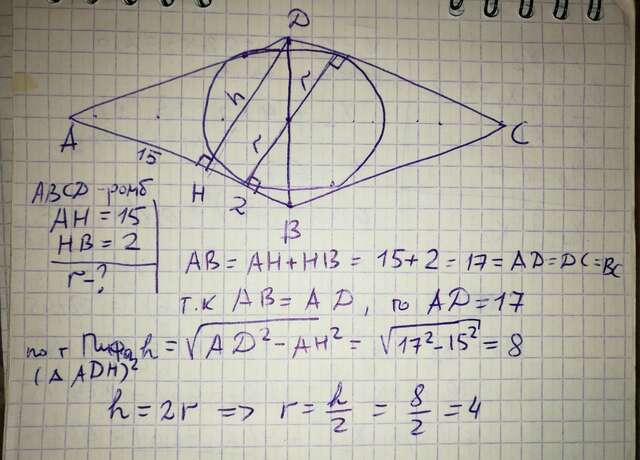 D
h
r
r
A
15
H
2
B
C
ABCD - ромб
AH = 15
HB = 2
r - ?
AB = AH + HB = 15 + 2 = 17 = AD = DC = BC
т.к AB = AD, то AD = 17
по т. h = √AD² - AH² = √17² - 15² = 8
(Δ ADH)
h = 2r => r = h/2 = 8/2 = 4